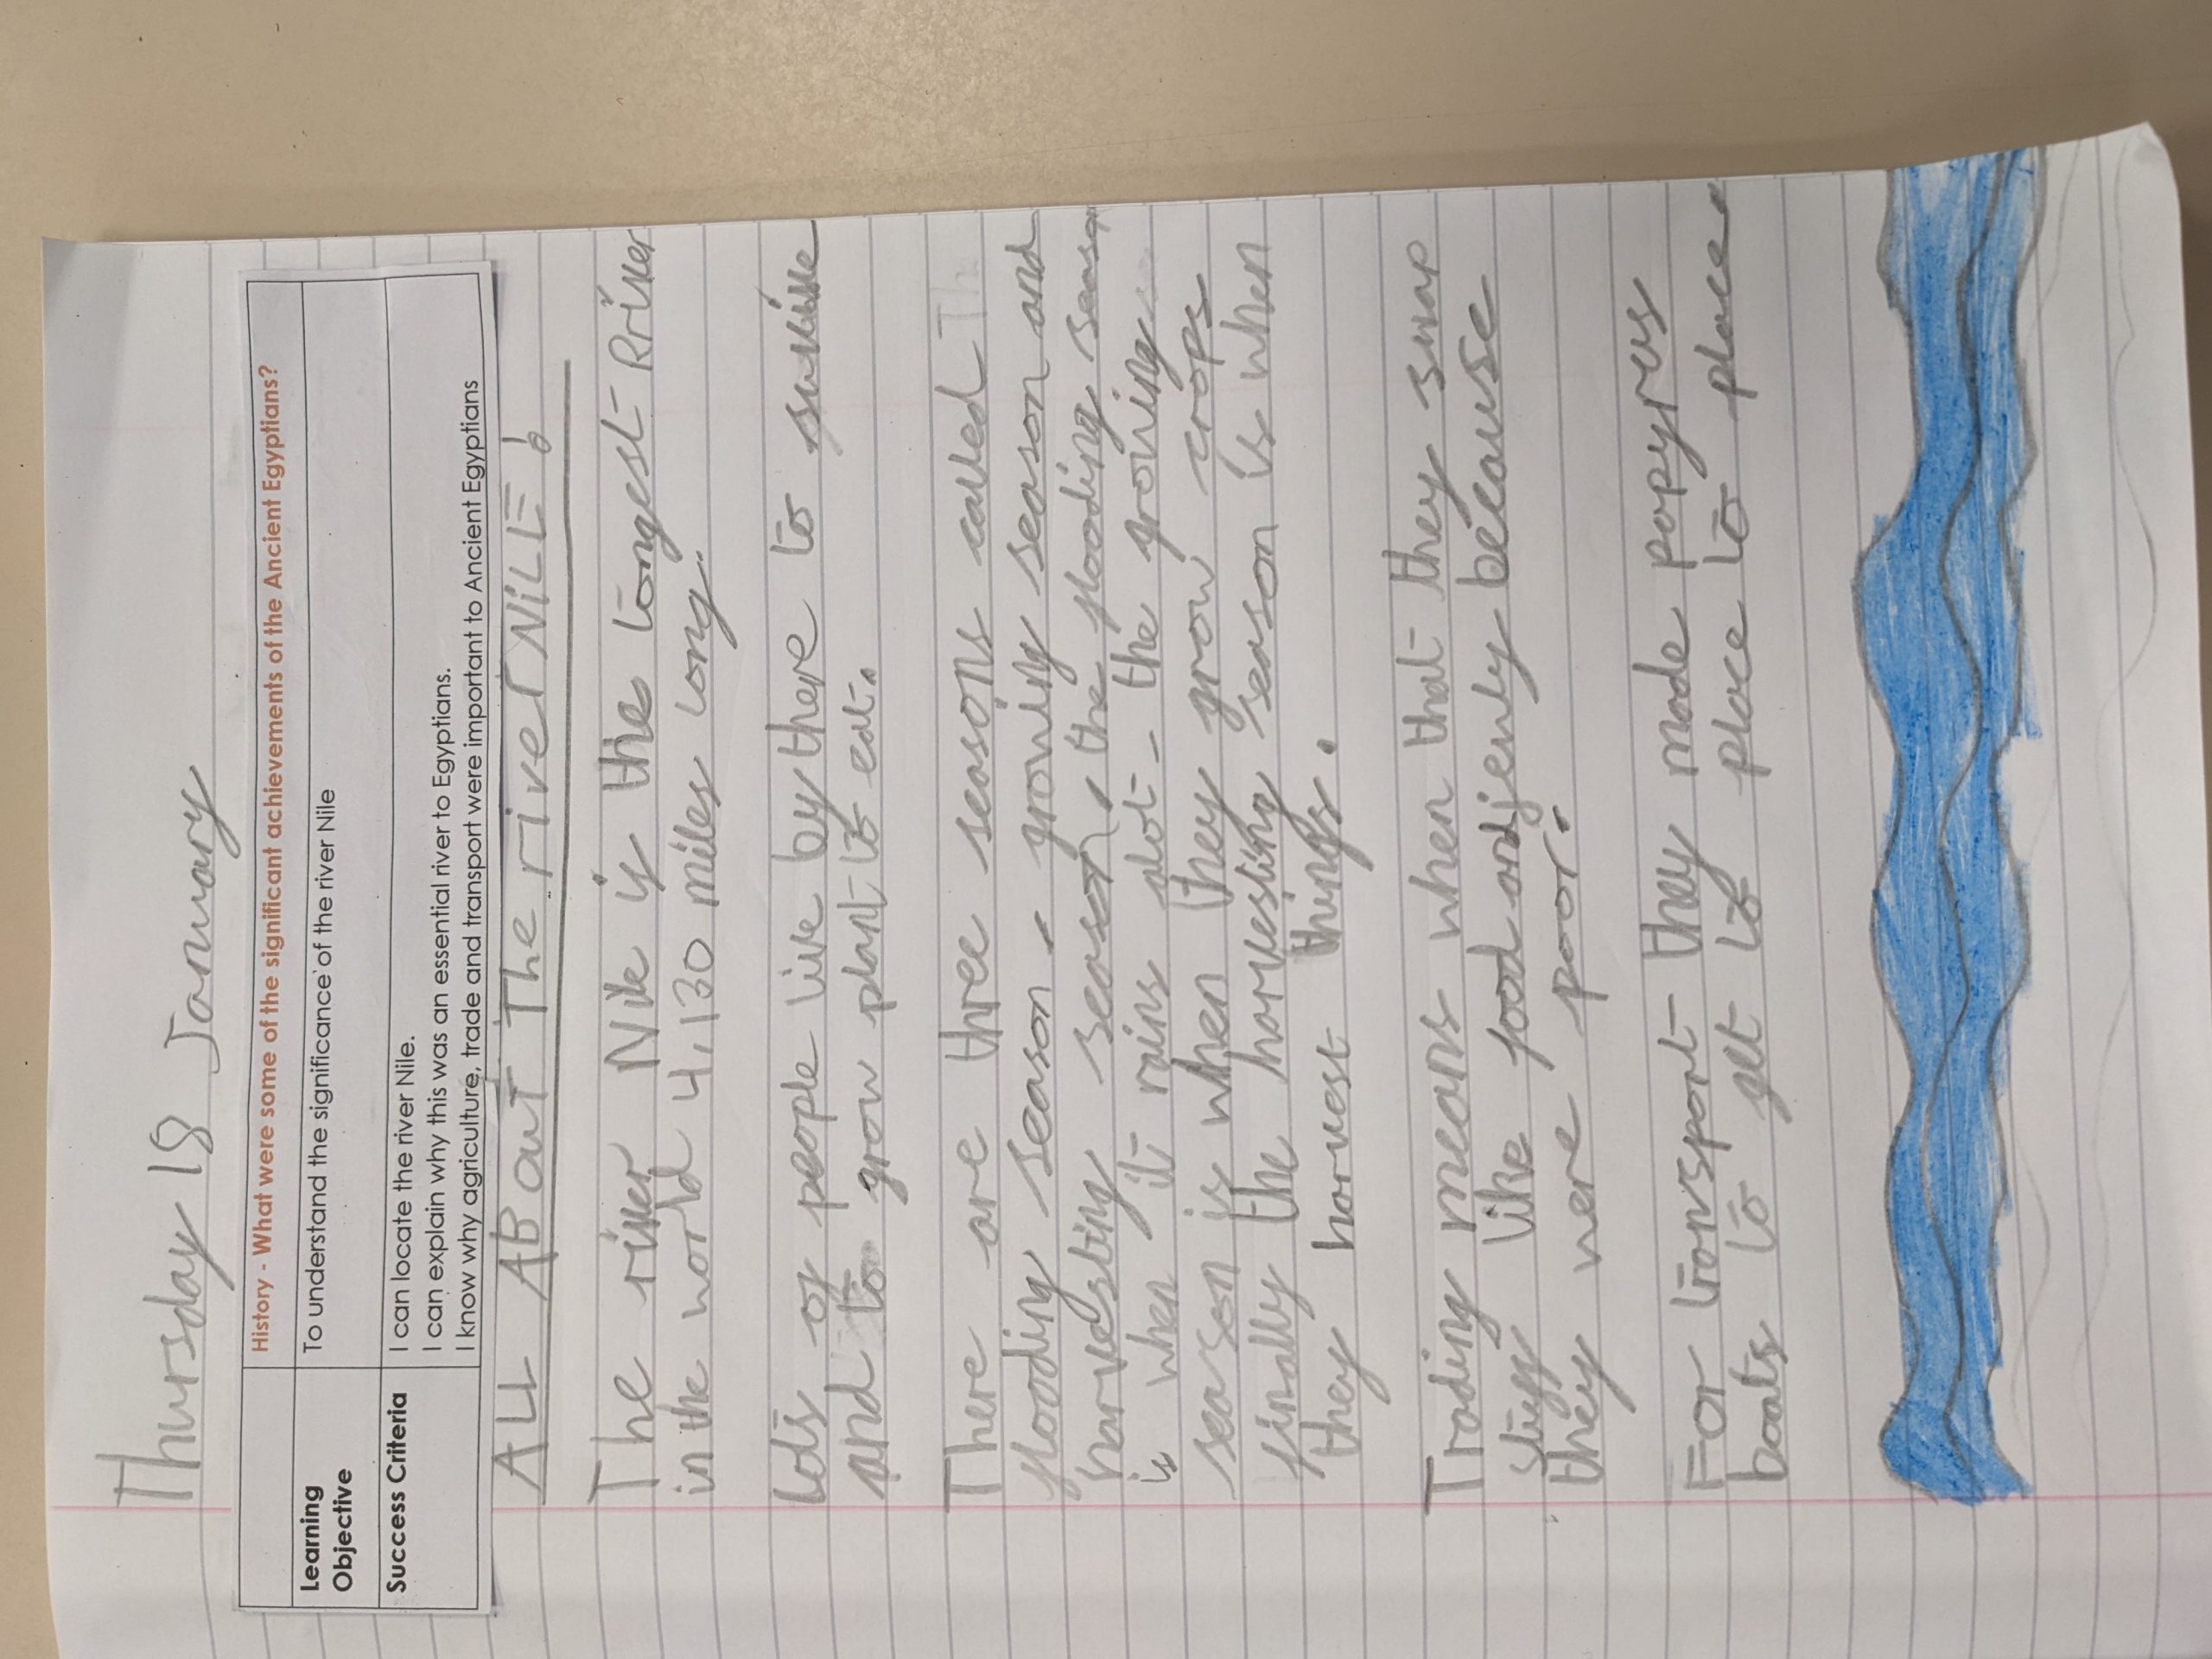 Thursday 18 January
History - What were some of the significant achievements of the Ancient Egyptians?
Learning Objective
To understand the significance of the river Nile
Success Criteria
I can locate the river Nile.
I can explain why this was an essential river to Egyptians.
I know why agriculture, trade and transport were important to Ancient Egyptians
ALL ABout The river NiLE!
The river Nile is the longest River
in the world 4,130 miles long.
Lots of people live by there to
and to grow plant to eat.
There are three seasons called
flooding season, growing season and
harvesting season, the flooding season
is when it rains alot. the growing
season is when they grow crops
finally the harvesting season is when
they harvest things.
Trading means when that they swap
like food and because
they were poor.
For transport they made papyres
boats to get to place to place